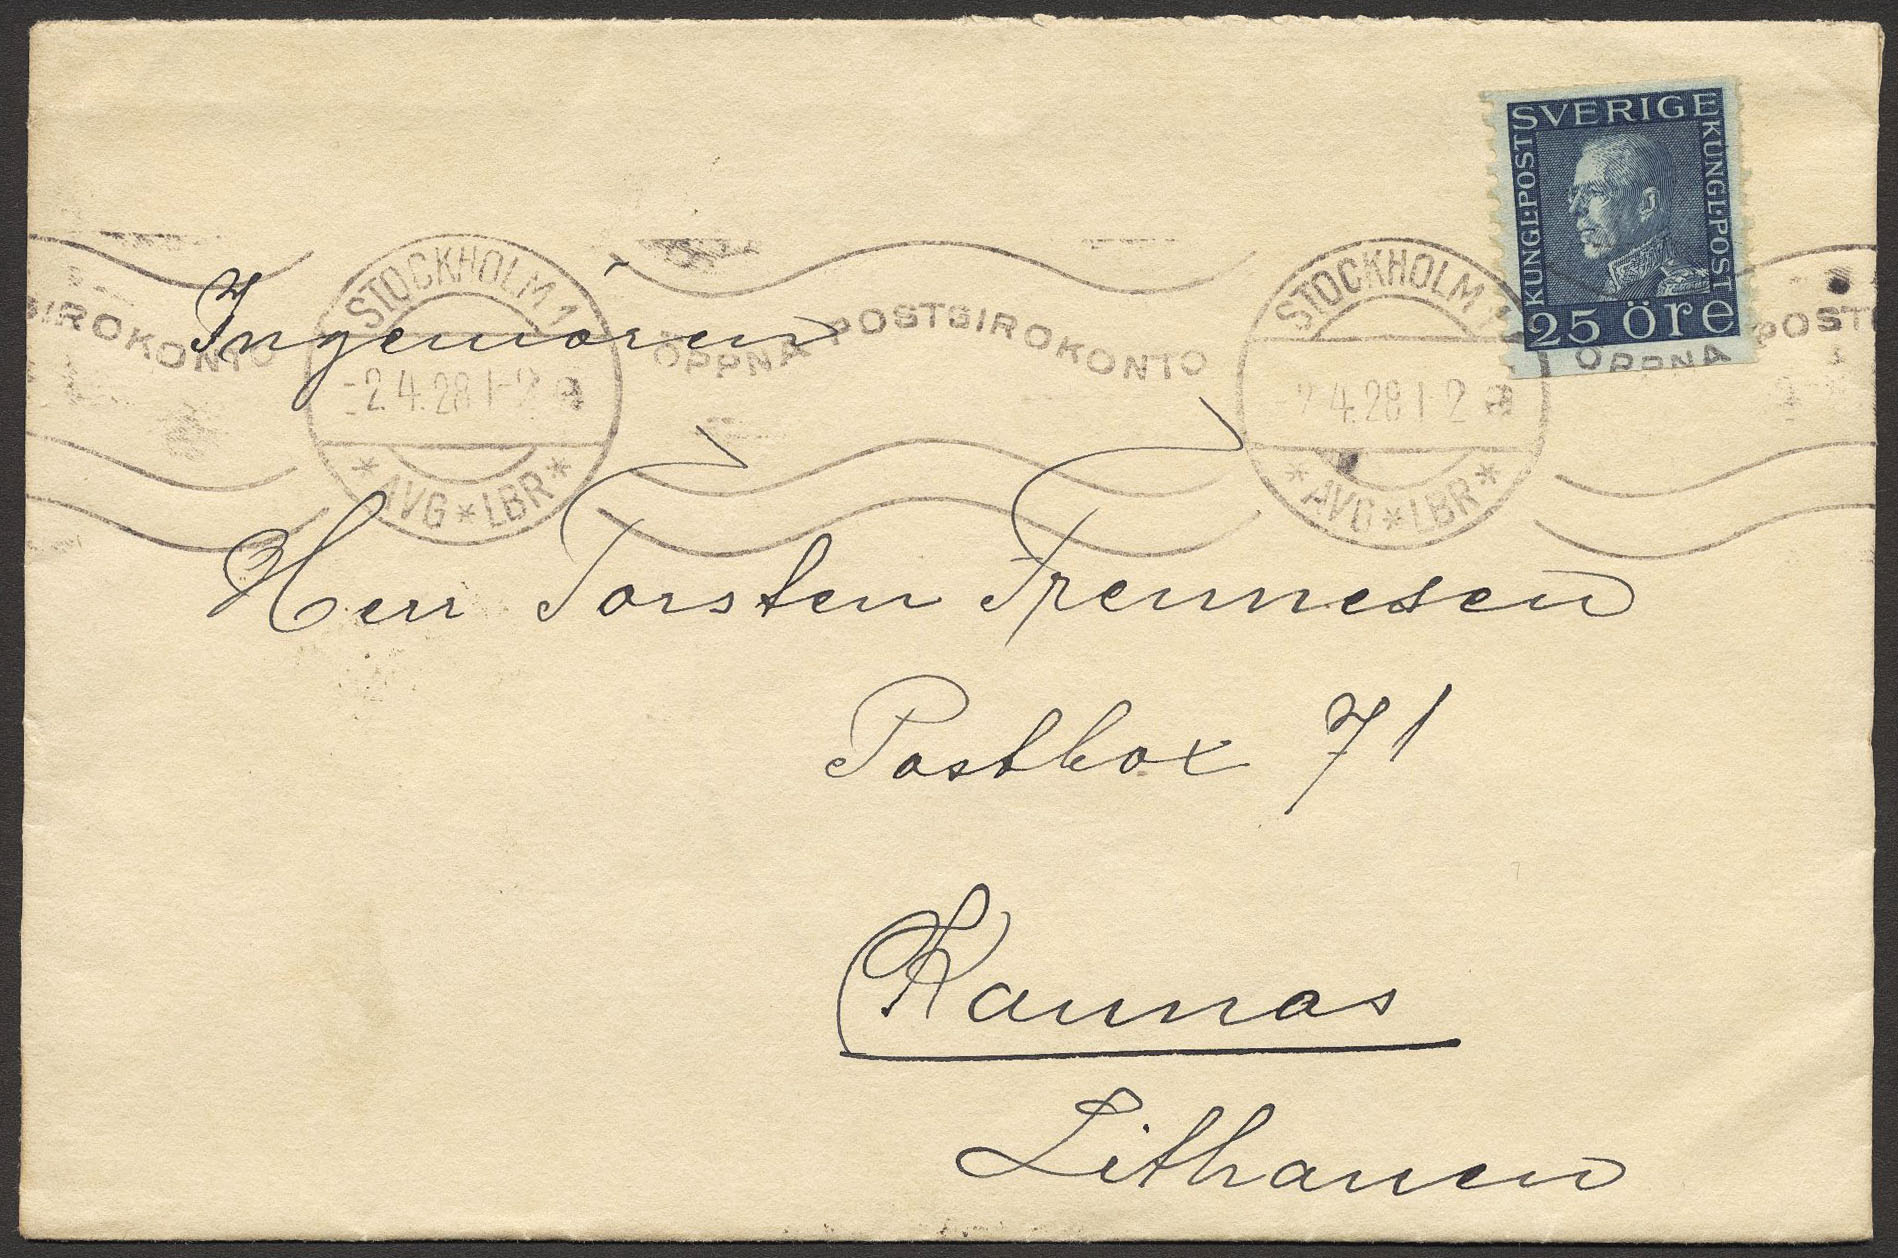 SVERIGE
KUNGL·POST
KUNGL·POST
25 öre
STOCKHOLM 1
-2.4.28 1-2
* AVG * LBR *
ÖPPNA POSTGIROKONTO
STOCKHOLM 1
2.4.28 1-2
* AVG * LBR *
GIROKONTO
ÖPPNA POSTG
Ingeniören
Herr Torsten Frennesen
Postbox 71
Kaunas
Lithauen